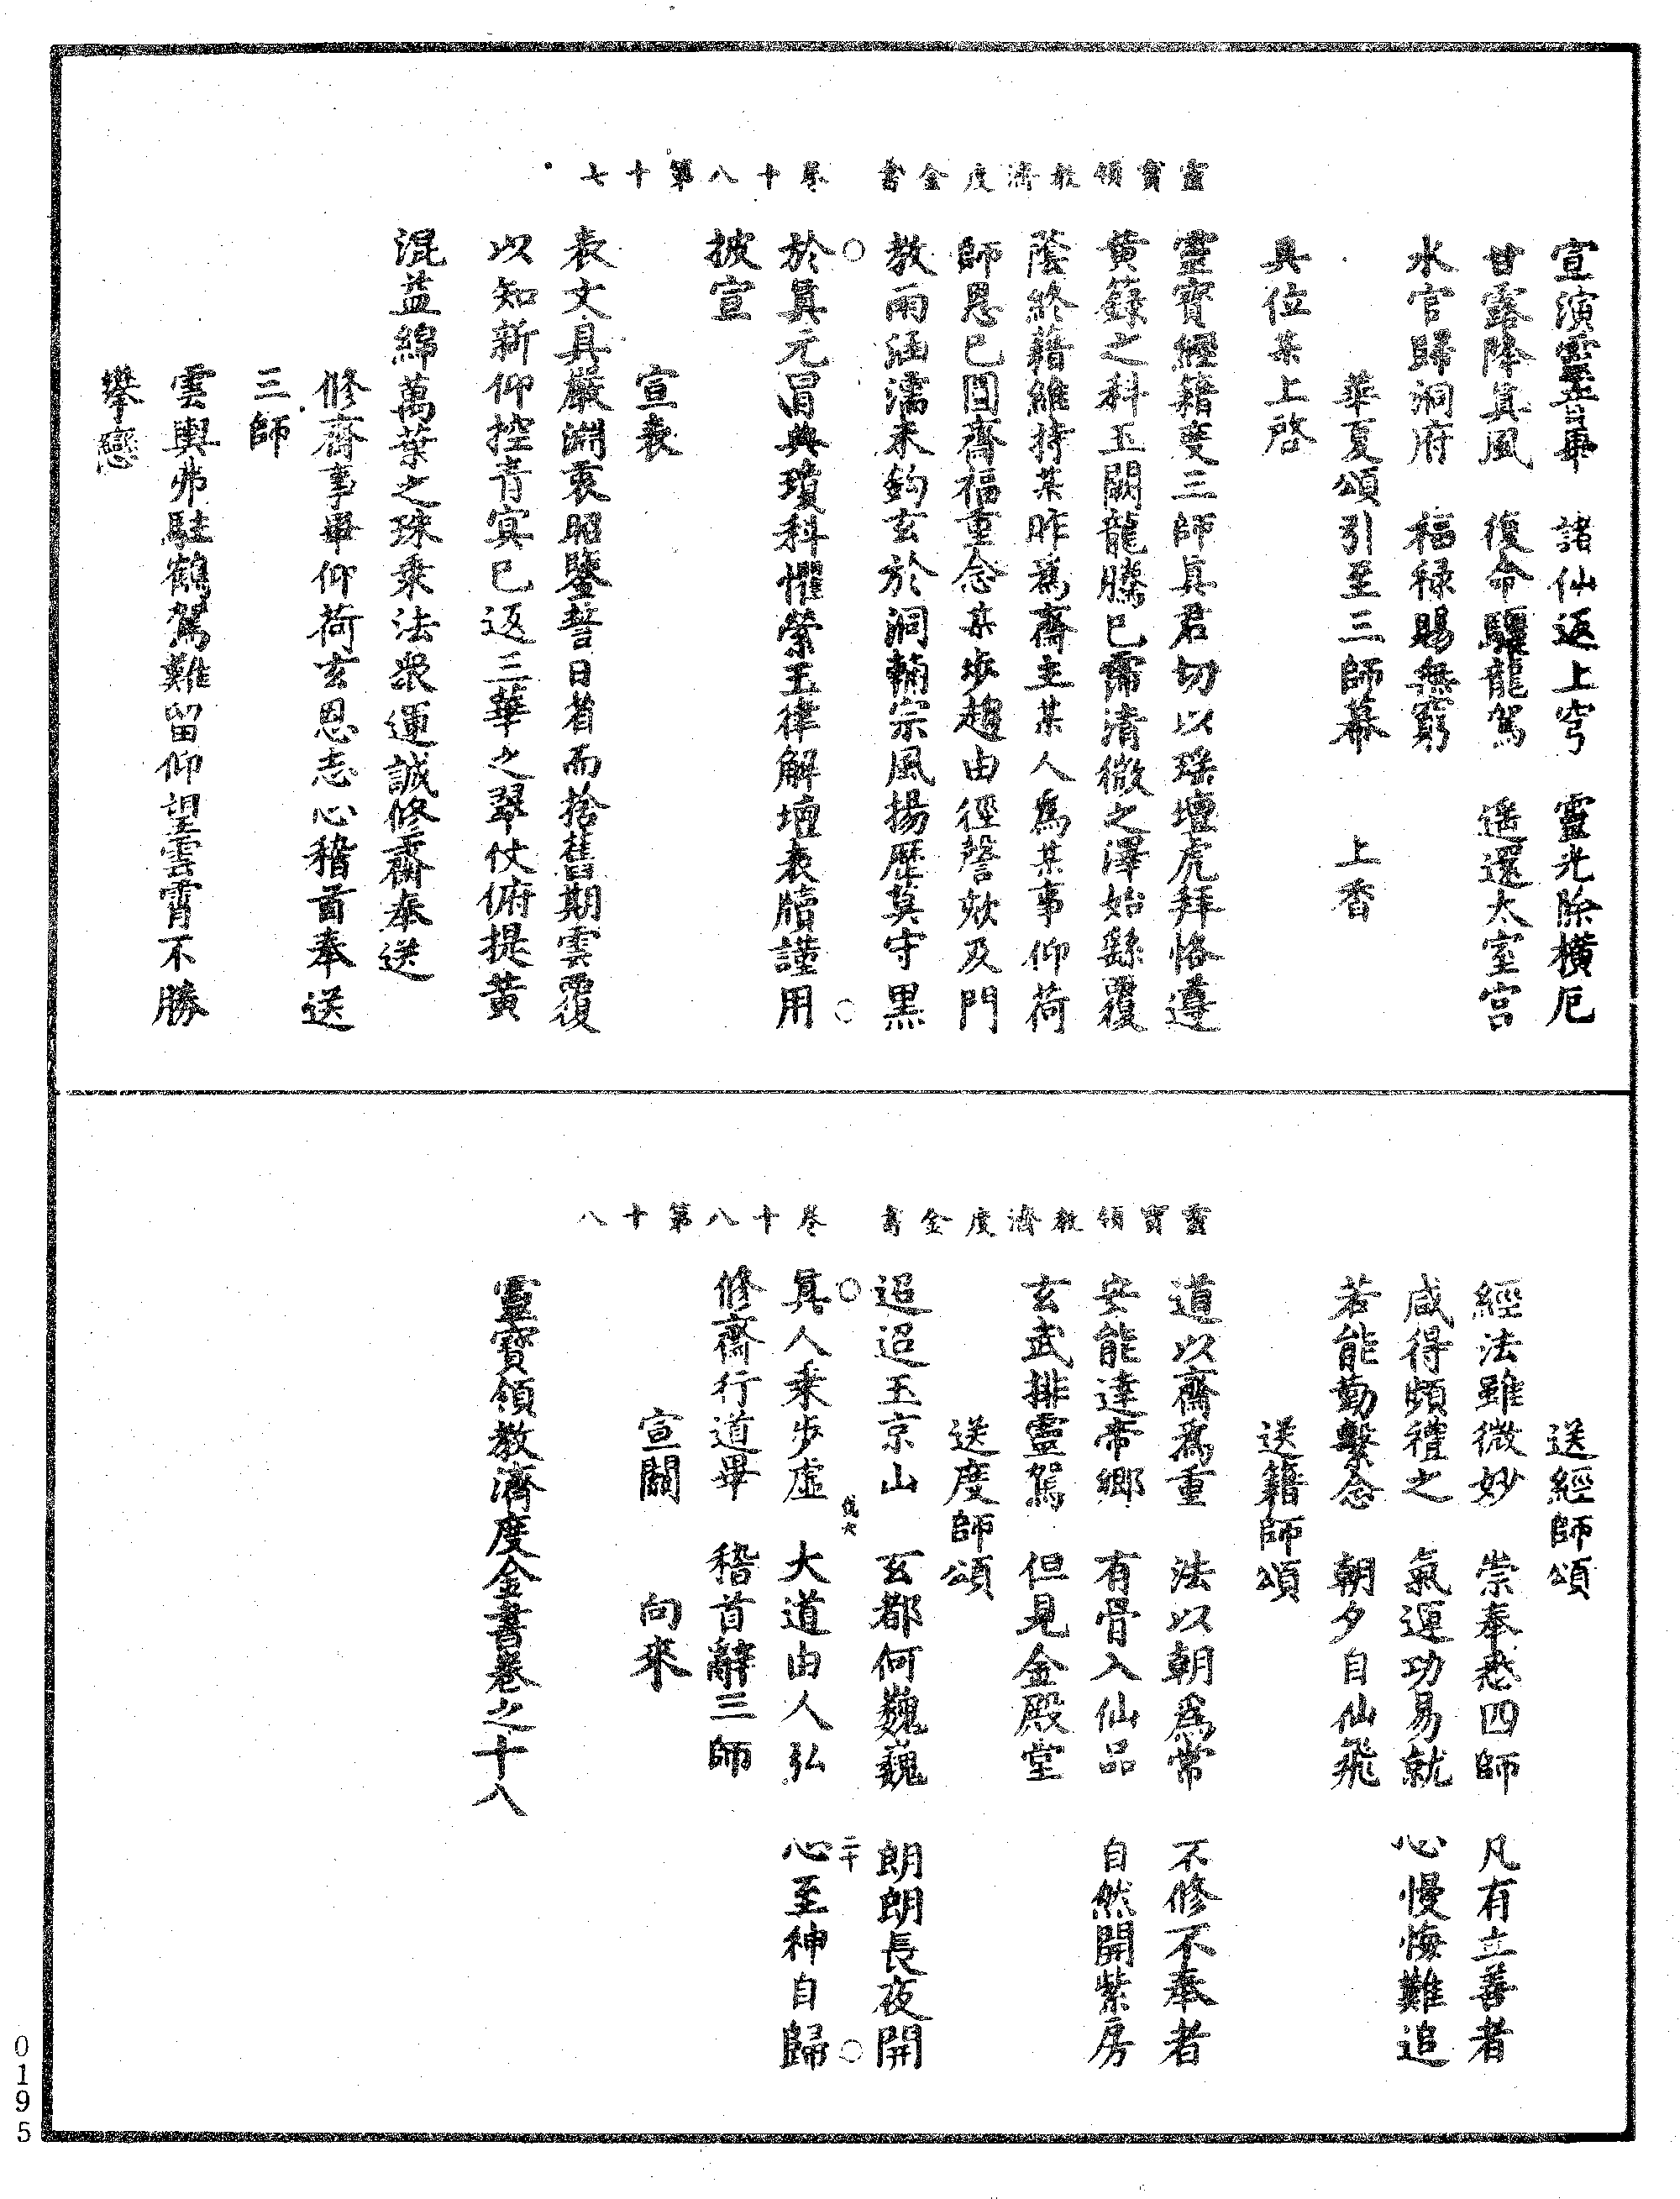 靈寶領教濟度金書 卷十八第十七
宣演靈音畢 諸仙返上穹 靈光除橫厄
甘露降眞風 復命驅龍駕 遥還太室宮
水官歸洞府 福祿賜無窮
華夏頌引至三師幕 上香
具位某上啓
靈寶經籍度三師眞君切以瑶壇虎拜恪遵
黃籙之科玉闕龍騰已霈清微之澤始繇覆
蔭終藉維持某昨爲齋主某人爲某事仰荷
師恩已圓齋福重念某步趨由徑謦欬及門
教雨涵濡未鈎玄於洞輔宗風揚歷莫守黑
於眞元冒典瓊科懼縈玉律解壇表牘謹用
披宣
宣表
表文具嚴淵衷昭鑒誓日者而捨舊期雲覆
以知新仰控青冥已返三華之翠仗俯提黃
混益綿萬葉之珠乘法衆運誠修齋奉送
修齋事畢仰荷玄恩志心稽首奉送
三師
雲輿弗駐鶴駕難留仰望雲霄不勝
攀戀
靈寶領教濟度金書 卷十八第十八
送經師頌
經法雖微妙 崇奉悉四師 凡有立善者
咸得頗禮之 氣運功易就 心慢悔難追
若能勤繫念 朝夕自仙飛
送籍師頌
道以齋爲重 法以朝爲常 不修不奉者
安能達帝鄉 有骨入仙品 自然開紫房
玄武排靈駕 但見金殿堂
送度師頌
迢迢玉京山 玄都何巍巍 朗朗長夜開
眞人乘步虛 大道由人弘 心至神自歸
二十
修齋行道畢 稽首辭三師
宣關 向來
靈寶領教濟度金書卷之十八
0195